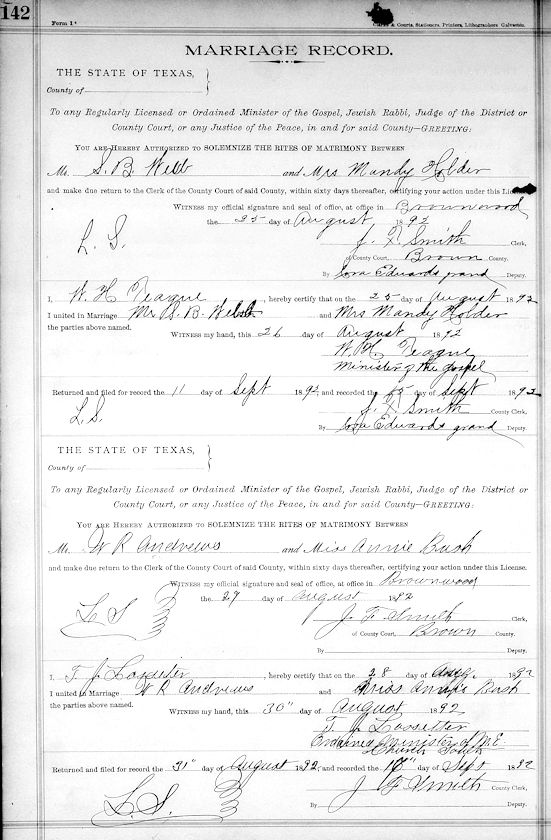 142
Form 1
& Courts, Stationers, Printers, Lithographers Galveston.
MARRIAGE RECORD.
THE STATE OF TEXAS,
County of
To any Regularly Licensed or Ordained Minister of the Gospel, Jewish Rabbi, Judge of the District or
County Court, or any Justice of the Peace, in and for said County—GREETING:
YOU ARE HEREBY AUTHORIZED TO SOLEMNIZE THE RITES OF MATRIMONY BETWEEN
Mr. S. B. Webb and Mrs Mandy Holder
and make due return to the Clerk of the County Court of said County, within sixty days thereafter, certifying your action under this License.
WITNESS my official signature and seal of office, at office in Brownwood
the 25 day of August 1892
L. S.
J. F. Smith Clerk,
of County Court, Brown County.
By Edwards Deputy.
I, W. H. Teague, hereby certify that on the 25 day of August 1892
I united in Marriage Mr S. B. Webb and Mrs Mandy Holder
the parties above named. WITNESS my hand, this 26 day of August 1892
W. H. Teague
Minister of the gospel
Returned and filed for record the 11 day of Sept 1892, and recorded the 15 day of Sept 1892
L. S. J. F. Smith County Clerk,
By Edwards Deputy.
THE STATE OF TEXAS,
County of
To any Regularly Licensed or Ordained Minister of the Gospel, Jewish Rabbi, Judge of the District or
County Court, or any Justice of the Peace, in and for said County—GREETING:
YOU ARE HEREBY AUTHORIZED TO SOLEMNIZE THE RITES OF MATRIMONY BETWEEN
Mr. W R Andrews and Miss Annie Bush
and make due return to the Clerk of the County Court of said County, within sixty days thereafter, certifying your action under this License.
WITNESS my official signature and seal of office, at office in Brownwood
the 27 day of August 1892
L S
J. F. Smith Clerk,
of County Court, Brown County.
By Deputy.
I, T. J. Lassetter, hereby certify that on the 28 day of Aug. 1892
I united in Marriage W R Andrews and Miss Annie Bush
the parties above named. WITNESS my hand, this 30" day of August 1892
T. J. Lassetter
Ordained Minister of M.E.
Church South
Returned and filed for record the 31" day of August 1892, and recorded the day of Sept 1892
L. S. J F Smith County Clerk,
By Deputy.